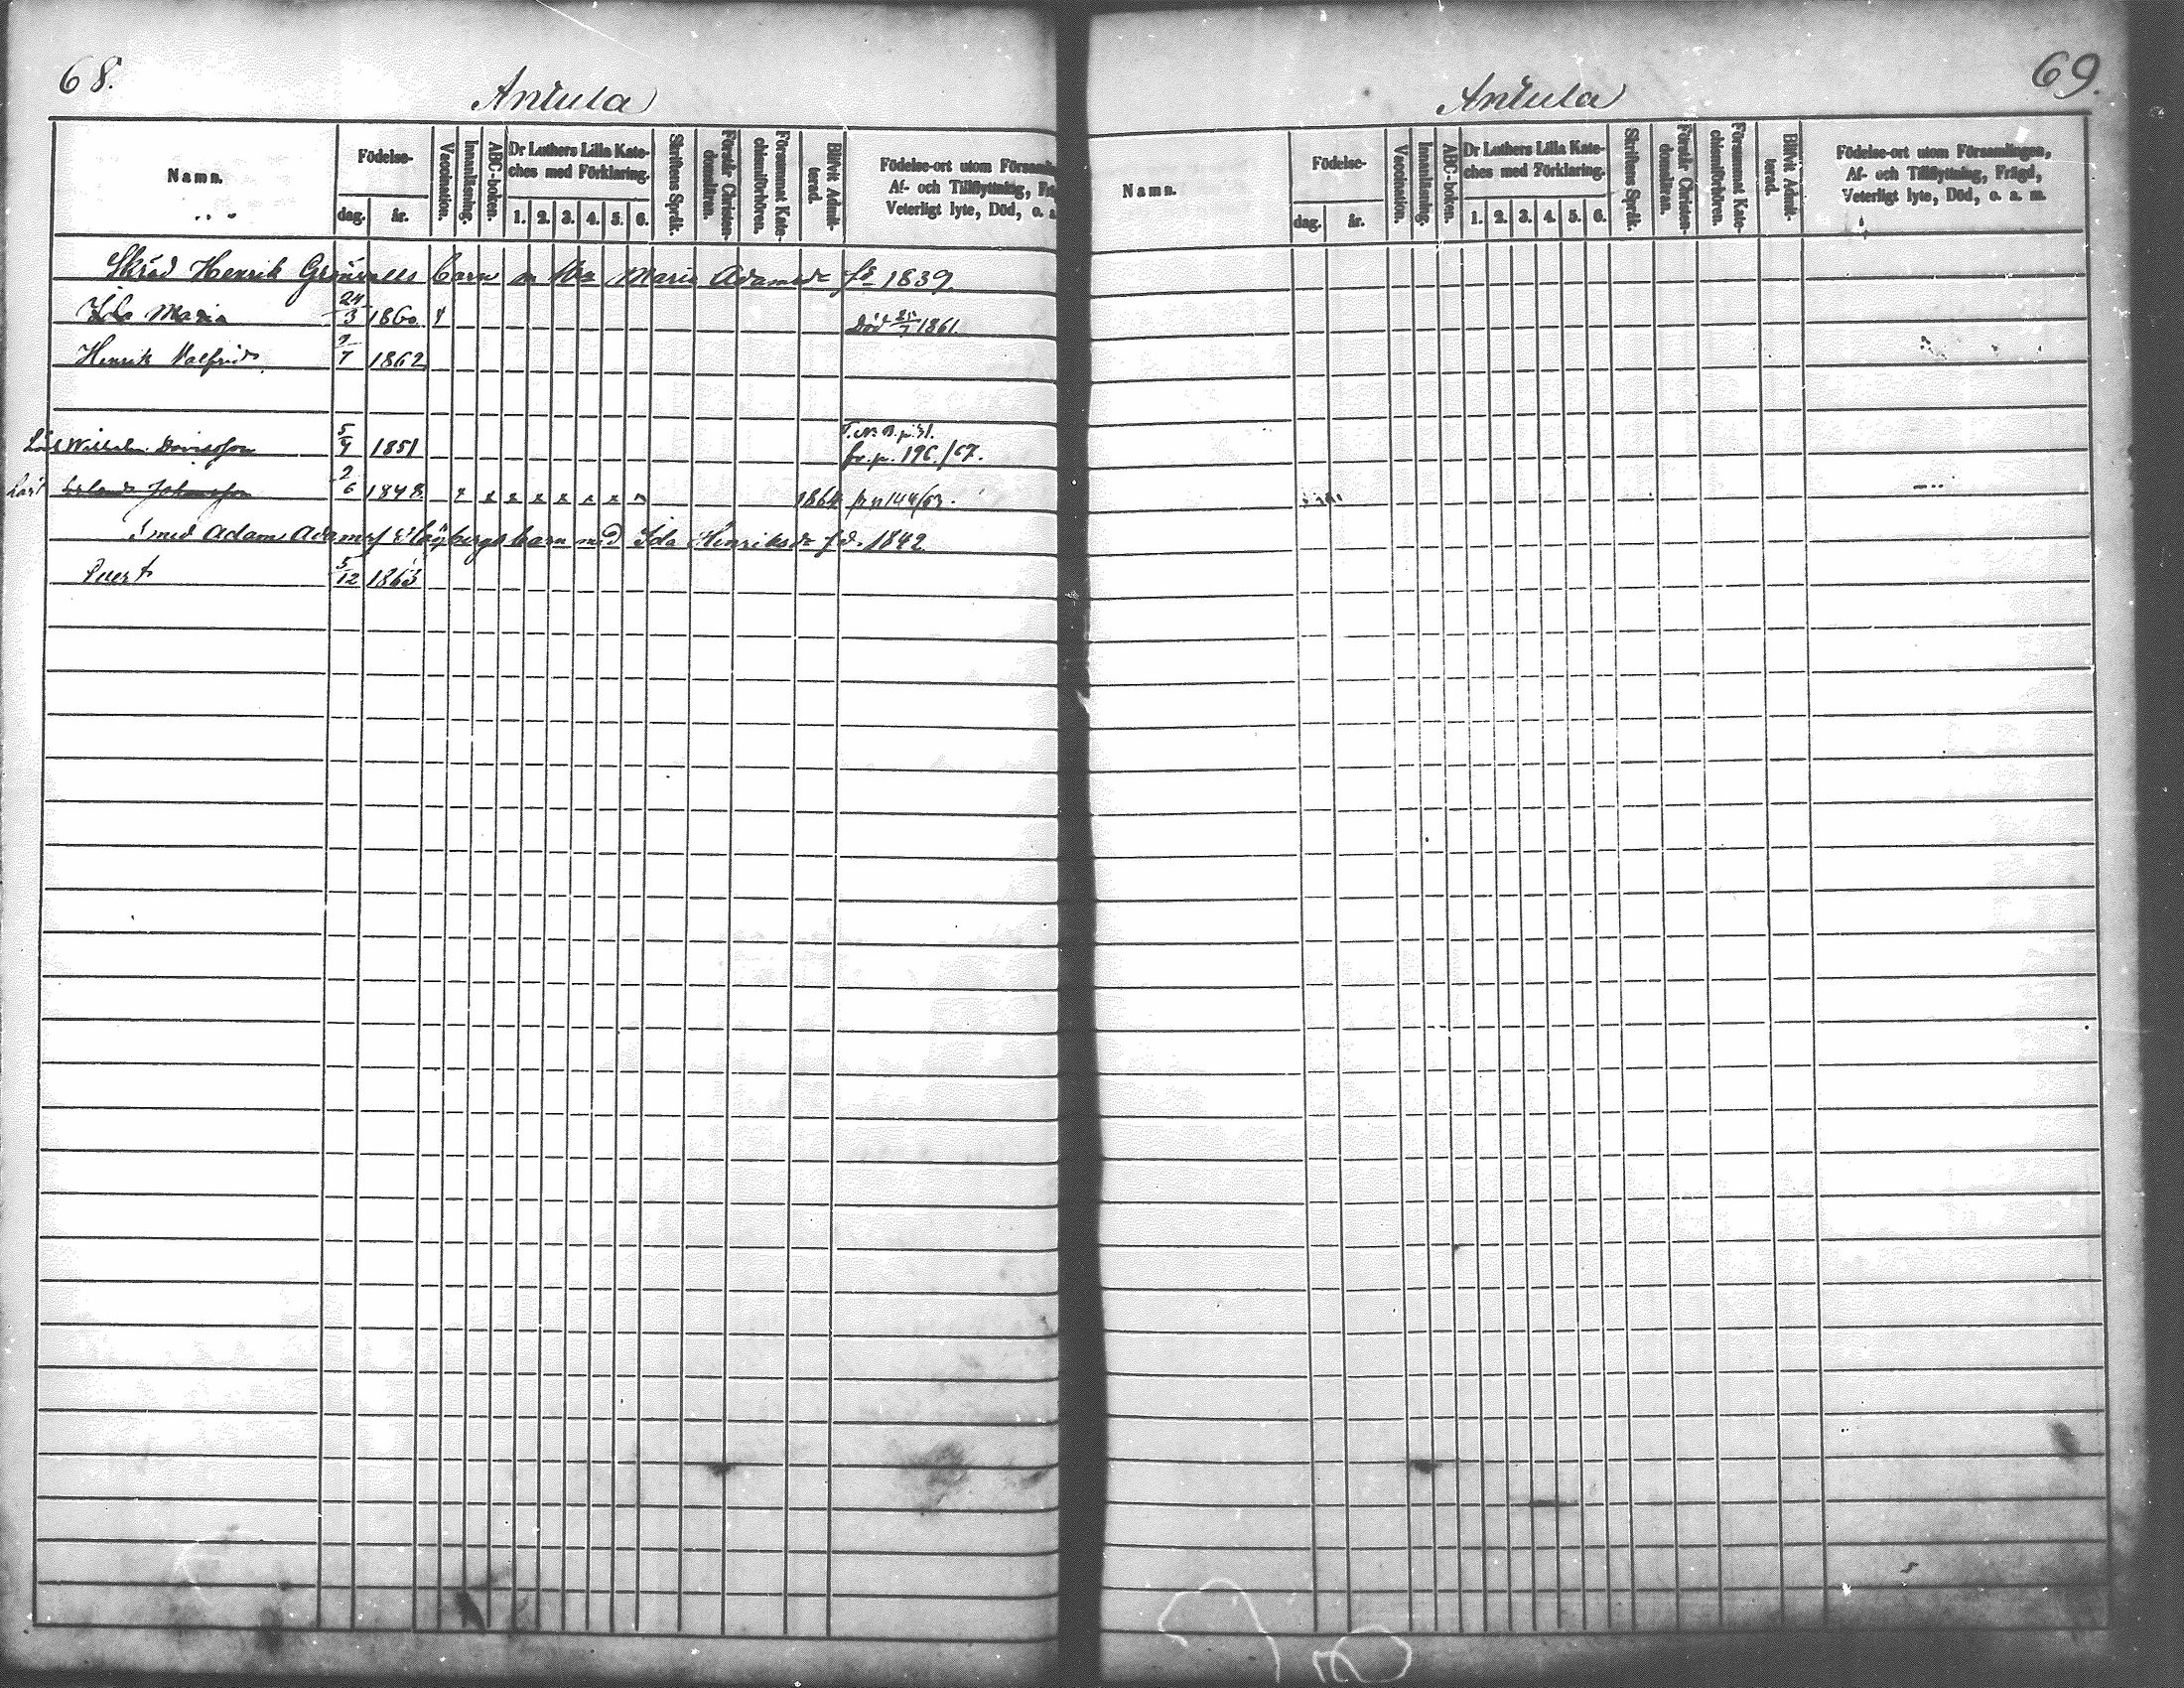 68.
Antula
Namn.
Födelse-
dag. år.
Vaccination.
Innanläsning.
ABC-boken.
Dr Luthers Lilla Kate-
ches med Förklaring.
1. 2. 3. 4. 5. 6.
Skriftens Språk.
Förstår Christen-
domsläran.
Försummat Kate-
chismiförhören.
Blifvit Admit-
terad.
Födelse-ort utom Församlin
Af- och Tillflyttning, Frä
Veterligt lyte, Död, o. a.
Skräd Henrik barn m Maria Adamsdr fd 1839.
Ida Maria 24/3 1860 Död 1861.
Henrik Valfrid 7 1862
Wilhelm Davidsson 5 1851 p. 196/67.
Johansson 2/6 1848 x x x x x x x 1864 p 144/63.
Smed Adam Adamsf barn med Ida Henriksdr fd. 1842
5/12 1863
69.
Antula
Namn.
Födelse-
dag. år.
Vaccination.
Innanläsning.
ABC-boken.
Dr Luthers Lilla Kate-
ches med Förklaring.
1. 2. 3. 4. 5. 6.
Skriftens Språk.
Förstår Christen-
domsläran.
Försummat Kate-
chismiförhören.
Blifvit Admit-
terad.
Födelse-ort utom Församlingen,
Af- och Tillflyttning, Frägd,
Veterligt lyte, Död, o. a. m.